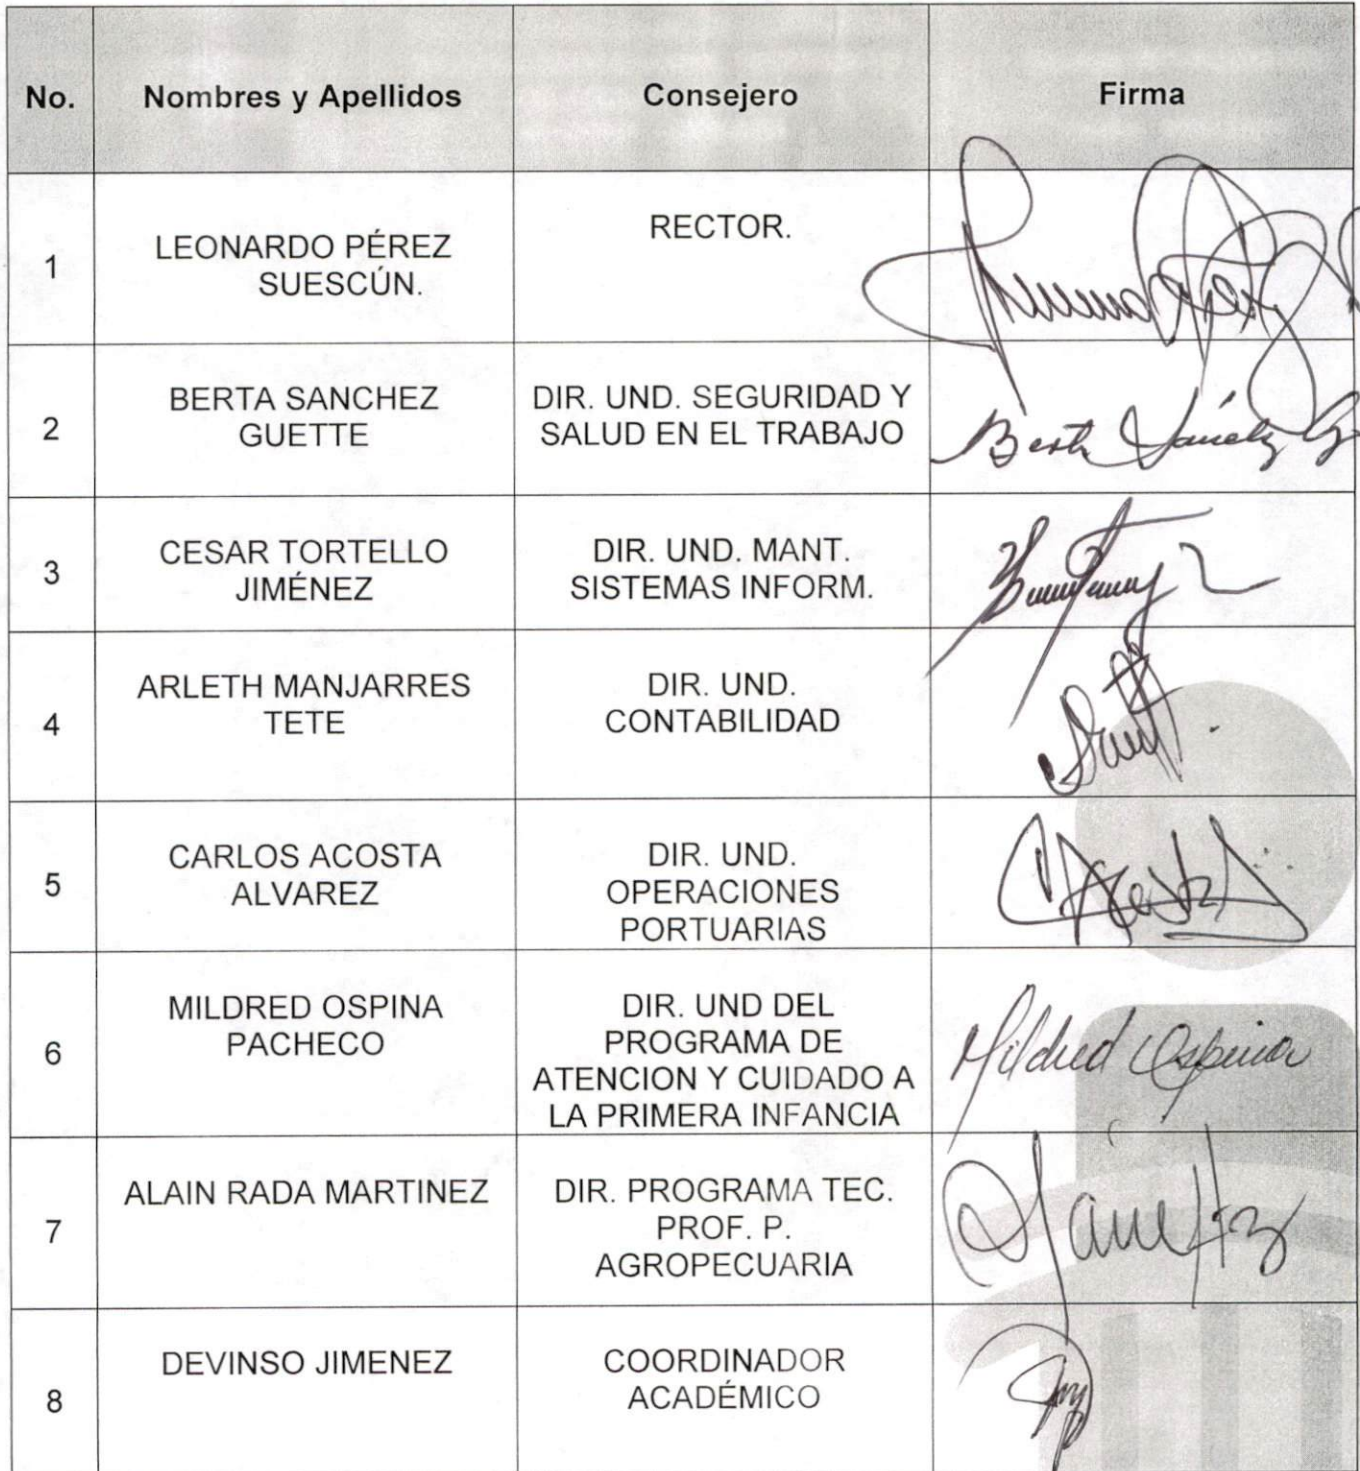 No. Nombres y Apellidos Consejero Firma
1 LEONARDO PÉREZ RECTOR.
SUESCÚN.
2 BERTA SANCHEZ DIR. UND. SEGURIDAD Y
GUETTE SALUD EN EL TRABAJO
Berta Sánchez G
3 CESAR TORTELLO DIR. UND. MANT.
JIMÉNEZ SISTEMAS INFORM.
4 ARLETH MANJARRES DIR. UND.
TETE CONTABILIDAD
5 CARLOS ACOSTA DIR. UND.
ALVAREZ OPERACIONES
PORTUARIAS
CAcosta
6 MILDRED OSPINA DIR. UND DEL
PACHECO PROGRAMA DE
ATENCION Y CUIDADO A
LA PRIMERA INFANCIA
Mildred Ospina
7 ALAIN RADA MARTINEZ DIR. PROGRAMA TEC.
PROF. P.
AGROPECUARIA
8 DEVINSO JIMENEZ COORDINADOR
ACADÉMICO